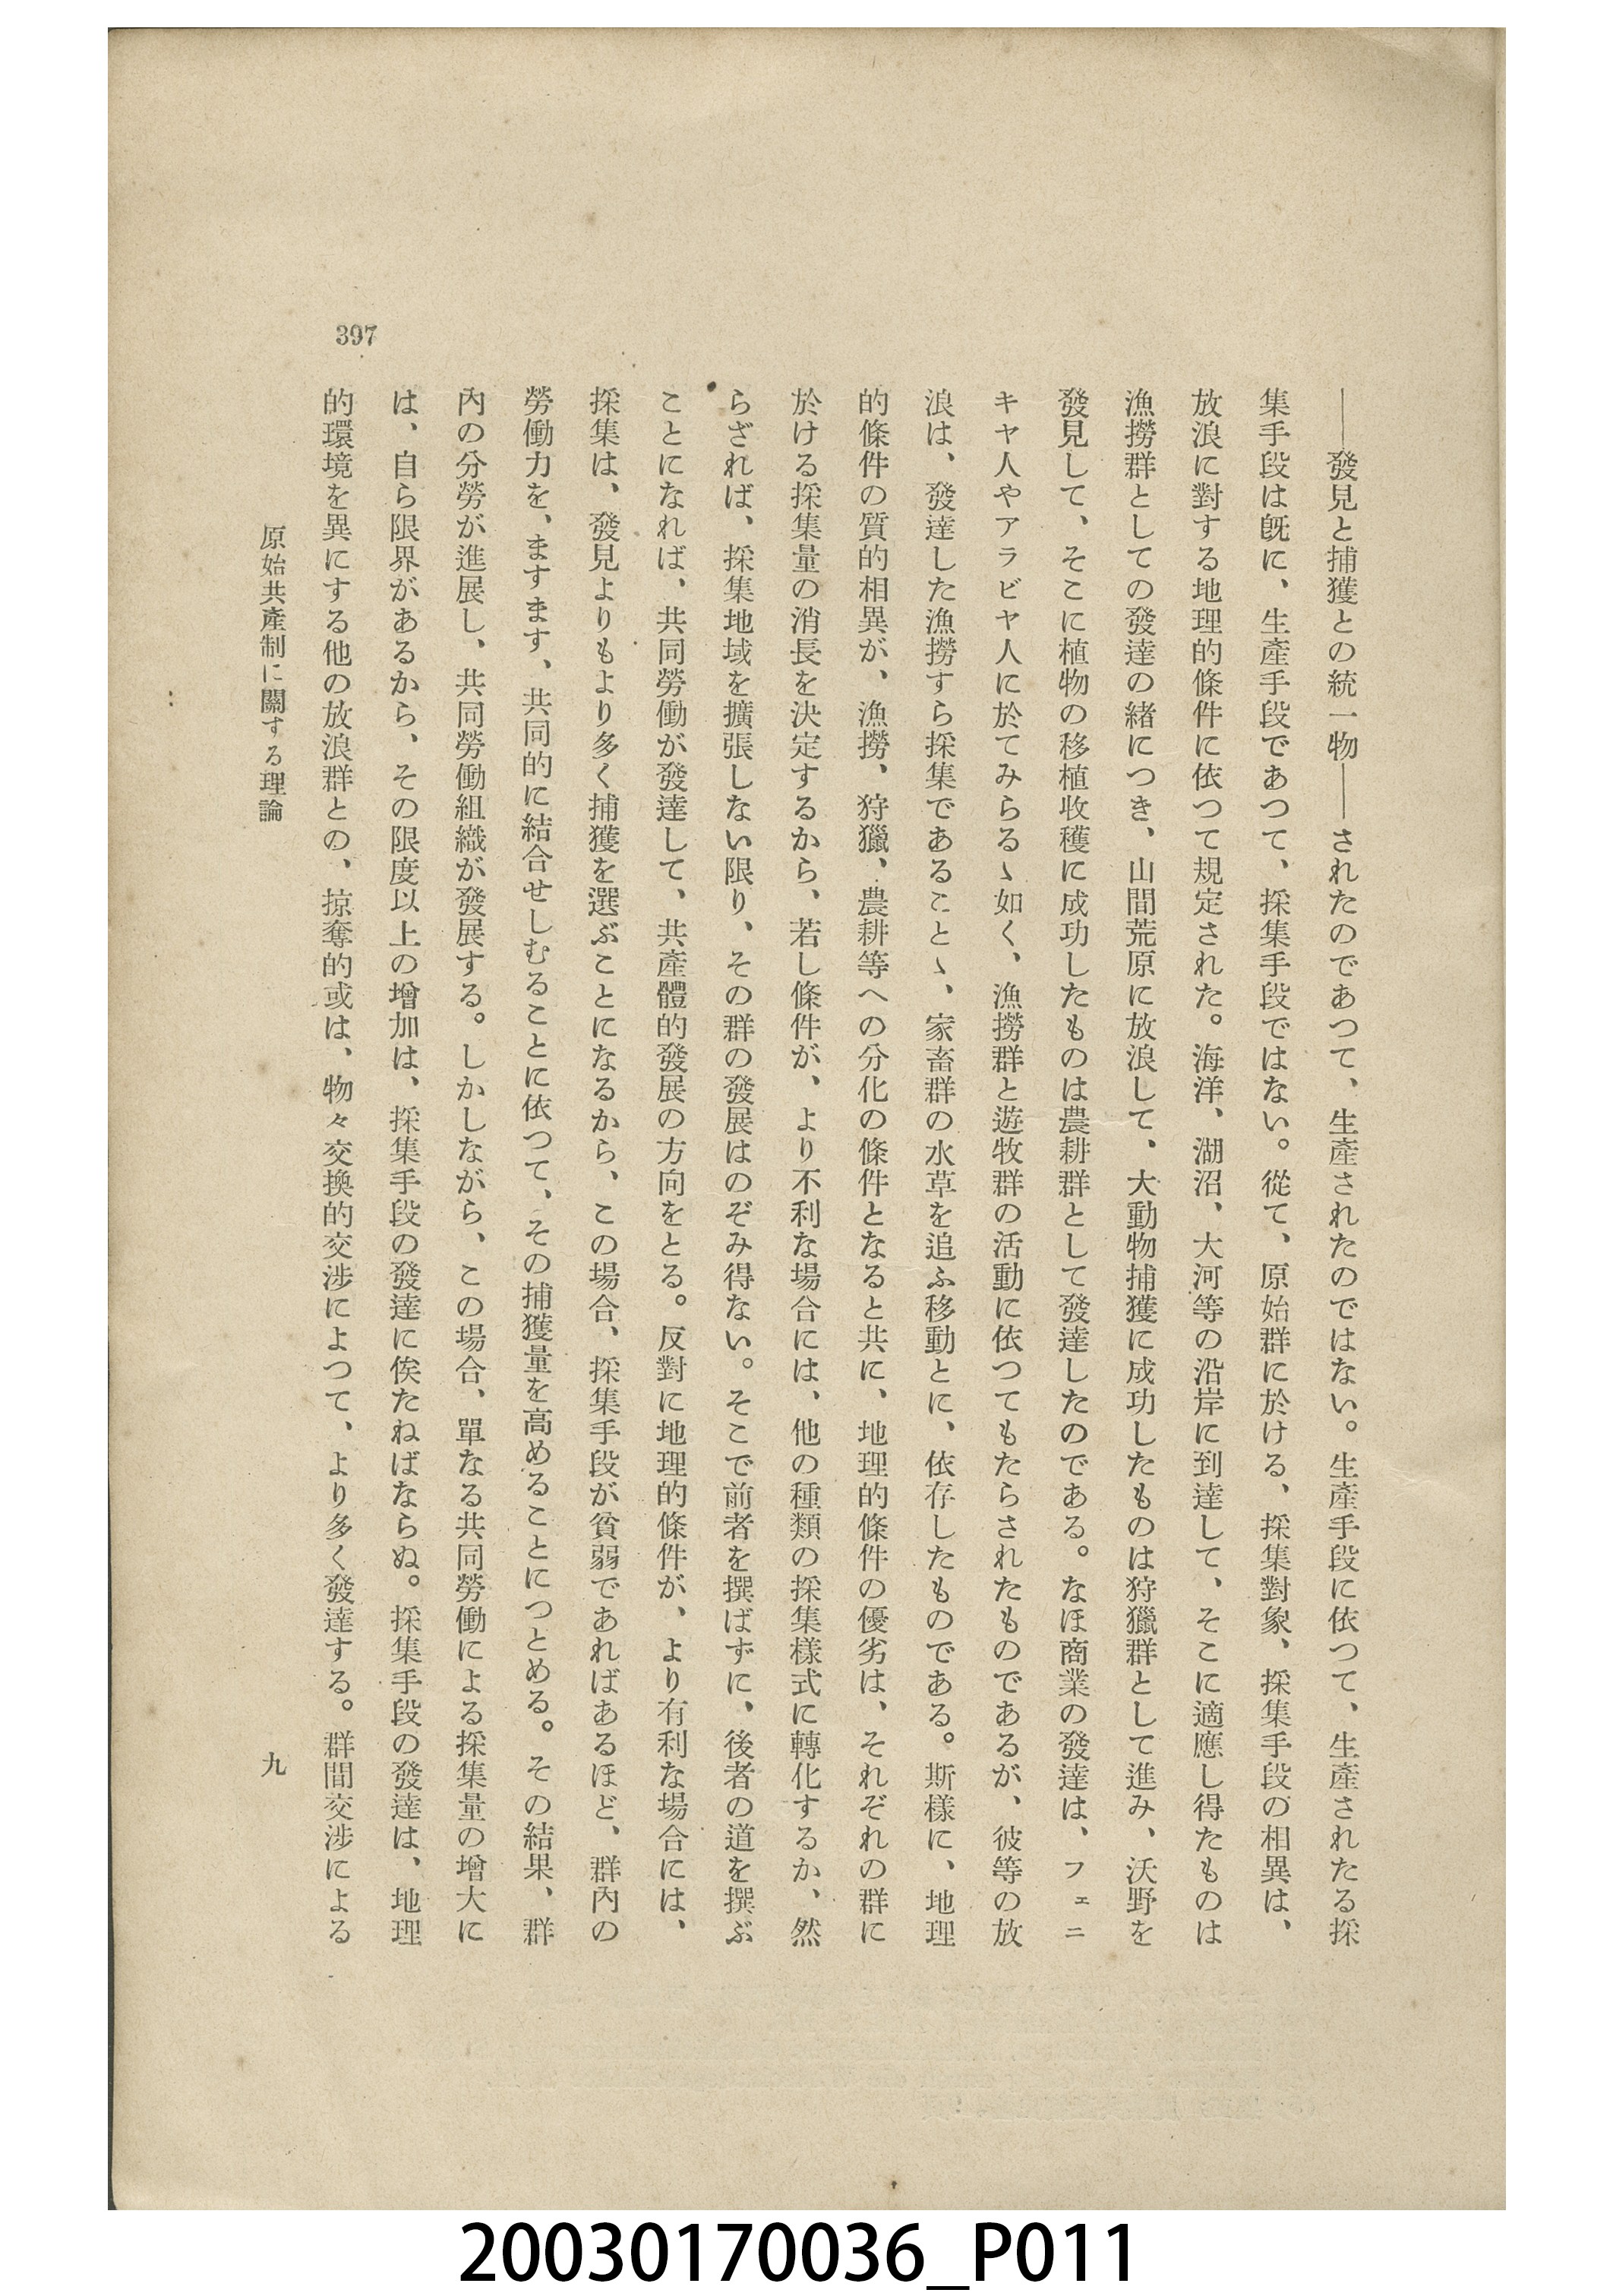 ――發見と捕獲との統一物――されたのであつて、生產されたのではない。生產手段に依つて、生產されたる採
集手段は旣に、生產手段であつて、採集手段ではない。從て、原始群に於ける、採集對象、採集手段の相異は、
放浪に對する地理的條件に依つて規定された。海洋、湖沼、大河等の沿岸に到達して、そこに適應し得たものは
漁撈群としての發達の緒につき、山間荒原に放浪して、大動物捕獲に成功したものは狩獵群として進み、沃野を
發見して、そこに植物の移植收穫に成功したものは農耕群として發達したのである。なほ商業の發達は、フェニ
キヤ人やアラビヤ人に於てみらるゝ如く、漁撈群と遊牧群の活動に依つてもたらされたものであるが、彼等の放
浪は、發達した漁撈すら採集であることゝ、家畜群の水草を追ふ移動とに、依存したものである。斯樣に、地理
的條件の質的相異が、漁撈、狩獵、農耕等への分化の條件となると共に、地理的條件の優劣は、それぞれの群に
於ける採集量の消長を決定するから、若し條件が、より不利な場合には、他の種類の採集樣式に轉化するか、然
らざれば、採集地域を擴張しない限り、その群の發展はのぞみ得ない。そこで前者を撰ばずに、後者の道を撰ぶ
ことになれば、共同勞働が發達して、共產體的發展の方向をとる。反對に地理的條件が、より有利な場合には、
採集は、發見よりもより多く捕獲を選ぶことになるから、この場合、採集手段が貧弱であればあるほど、群內の
勞働力を、ますます、共同的に結合せしむることに依つて、その捕獲量を高めることにつとめる。その結果、群
內の分勞が進展し、共同勞働組織が發展する。しかしながら、この場合、單なる共同勞働による採集量の增大に
は、自ら限界があるから、その限度以上の增加は、採集手段の發達に俟たねばならぬ。採集手段の發達は、地理
的環境を異にする他の放浪群との、掠奪的或は、物々交換的交涉によつて、より多く發達する。群間交涉による
397
原始共產制に關する理論
九
20030170036_P011